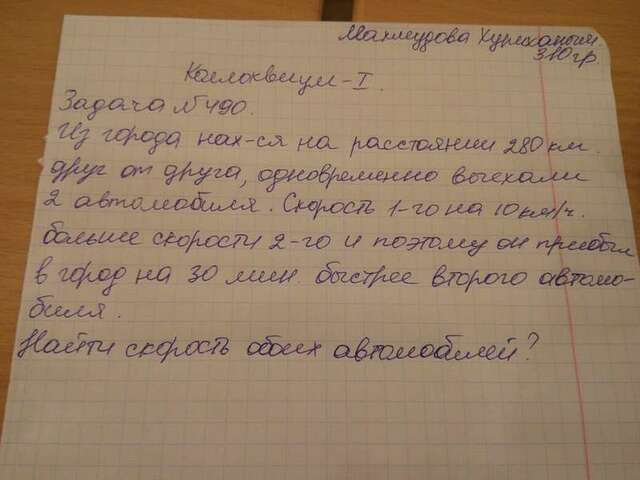 Махмудова Хумханым
310гр.
Каллоквиум-I.
Задача №490.
Из города нах-ся на расстоянии 280 км.
друг от друга, одновременно выехали
2 автомобиля. Скорость 1-го на 10 км/ч.
больше скорости 2-го и поэтому он прибыл
в город на 30 мин. быстрее второго автомо-
биля.
Найти скорость обоих автомобилей?